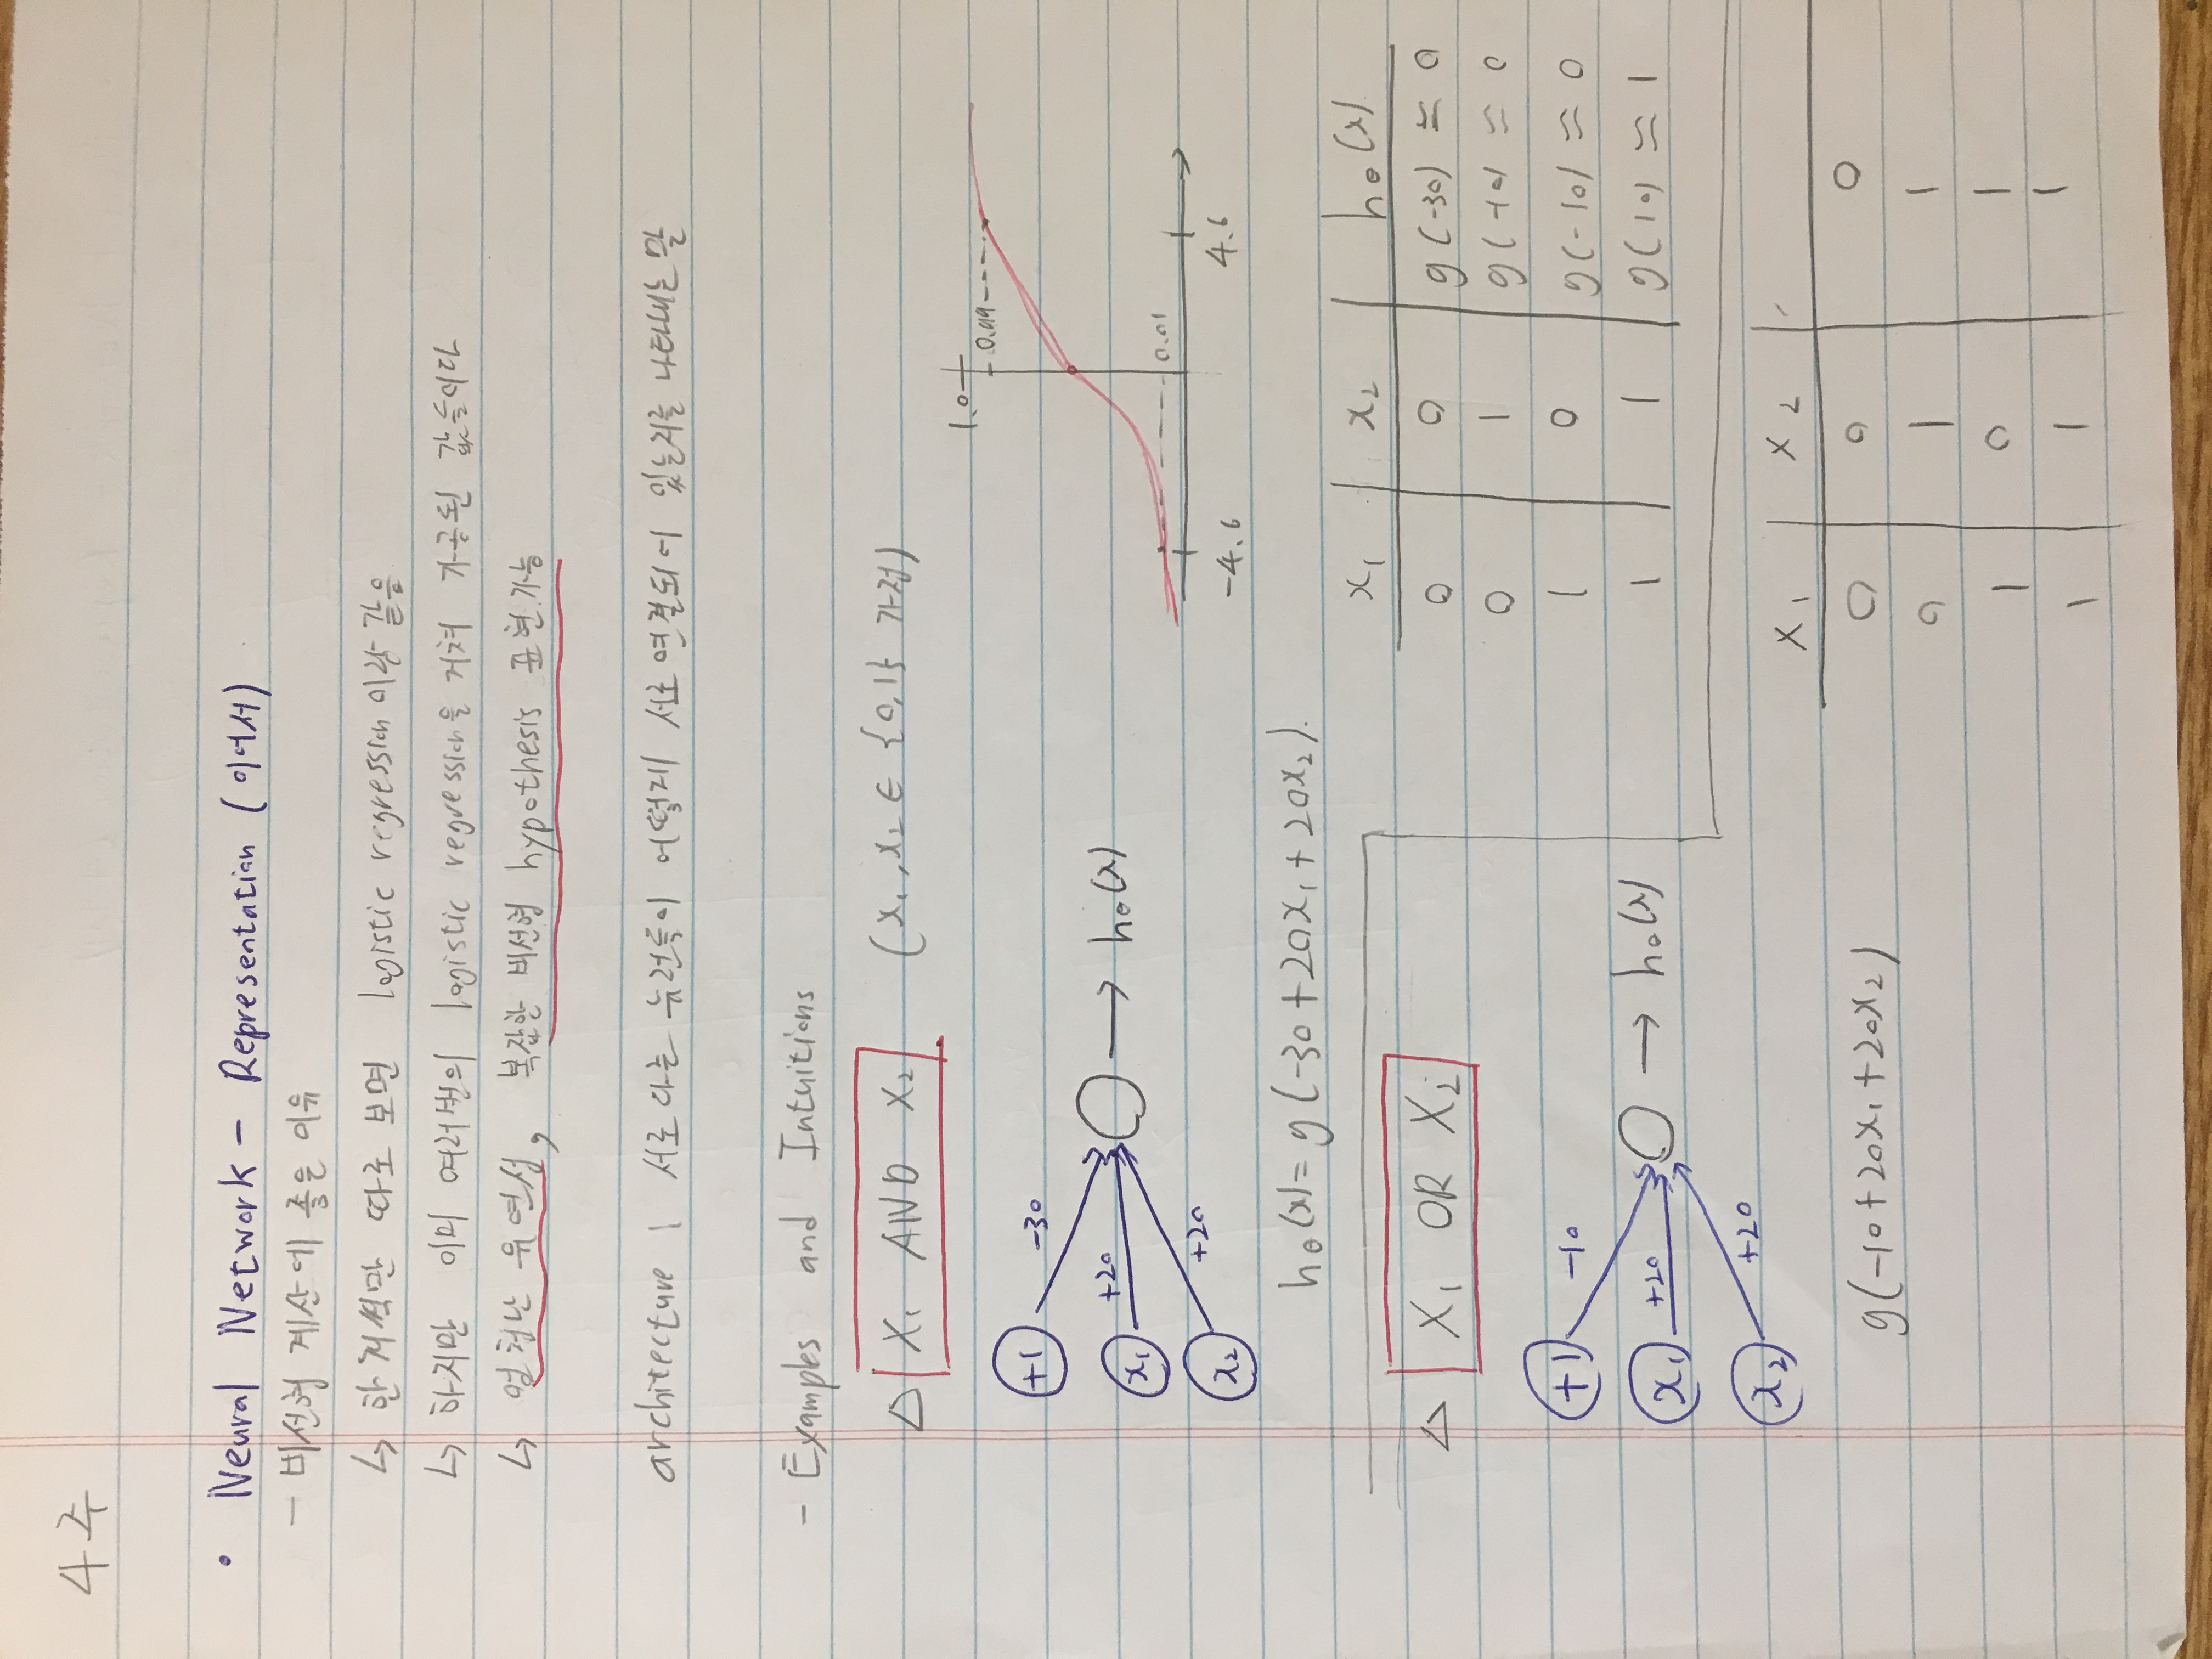 4주
• Neural Network - Representation (이어서)
- 비선형 계산에 좋은 이유
↳ 한 겹씩만 따로 보면 logistic regression이랑 같음
↳ 하지만 이미 여러번의 logistic regression을 거쳐 가공된 값들이다
↳ 엄청난 유연성, 복잡한 비선형 hypothesis 표현 가능
architecture : 서로 다른 뉴런들이 어떻게 서로 연결되어 있는지를 나타내는 말
- Examples and Intuitions
△ X₁ AND X₂ (x₁, x₂ ∈ {0,1} 가정)
+1 -30
x₁ +20 → hθ(x)
x₂ +20
1.0
0.99
0.01
-4.6 4.6
hθ(x) = g(-30+20x₁+20x₂).
x₁ x₂ hθ(x)
0 0 g(-30) ≈ 0
0 1 g(-10) ≈ 0
1 0 g(-10) ≈ 0
1 1 g(10) ≈ 1
△ X₁ OR X₂
+1 -10
x₁ +20 → hθ(x)
x₂ +20
g(-10+20x₁+20x₂)
X₁ X₂
0 0 0
0 1 1
1 0 1
1 1 1